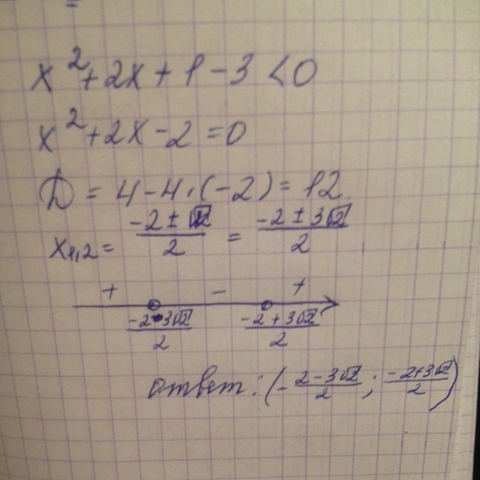 x² + 2x + 1 - 3 < 0
x² + 2x - 2 = 0
D = 4 - 4 · (-2) = 12
x₁,₂ = (-2 ± √12)/2 = (-2 ± 3√2)/2
+ - +
(-2 - 3√2)/2 (-2 + 3√2)/2
ответ: (-(2 - 3√2)/2 ; (-2 + 3√2)/2)